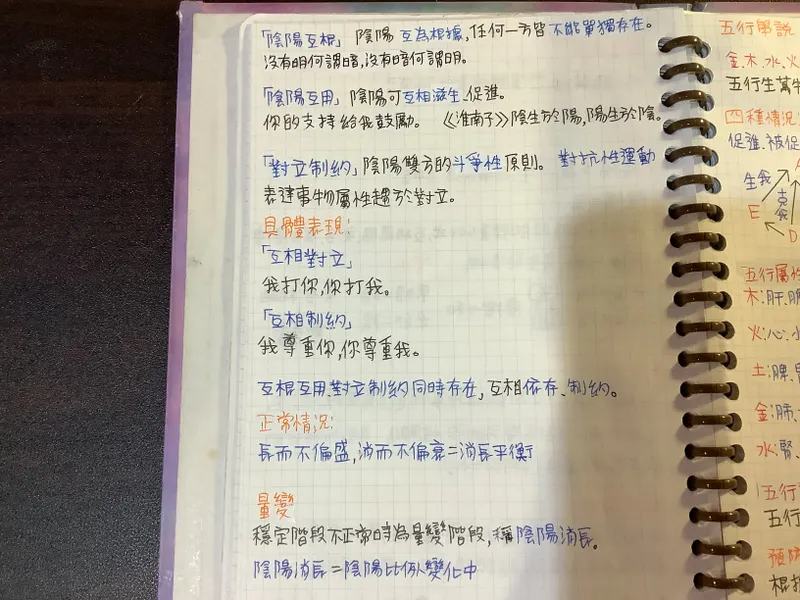 「陰陽互根」 陰陽 互為根據,任何一方皆 不能單獨存在。
沒有明何謂暗,沒有暗何謂明。
「陰陽互用」 陰陽可互相滋生、促進。
你的支持給我鼓勵。 《淮南子》陰生於陽,陽生於陰。
「對立制約」陰陽雙方的斗爭性原則。 對抗性運動
表達事物屬性趨於對立。
具體表現:
「互相對立」
我打你,你打我。
「互相制約」
我尊重你,你尊重我。
互根互用、對立制約同時存在,互相依存、制約。
正常情況:
長而不偏盛,消而不偏衰=消長平衡
量變
穩定階段不正常時為量變階段,稱陰陽消長。
陰陽消長=陰陽比例變化中
五行解說
金.木.水.火
五行生萬
四種情況:
促進.被促
生我
克我
E
D
五行屬性
木:肝.膽
火:心.小
土:脾.胃
金:肺.
水:腎.
五行
五行
預防
根據